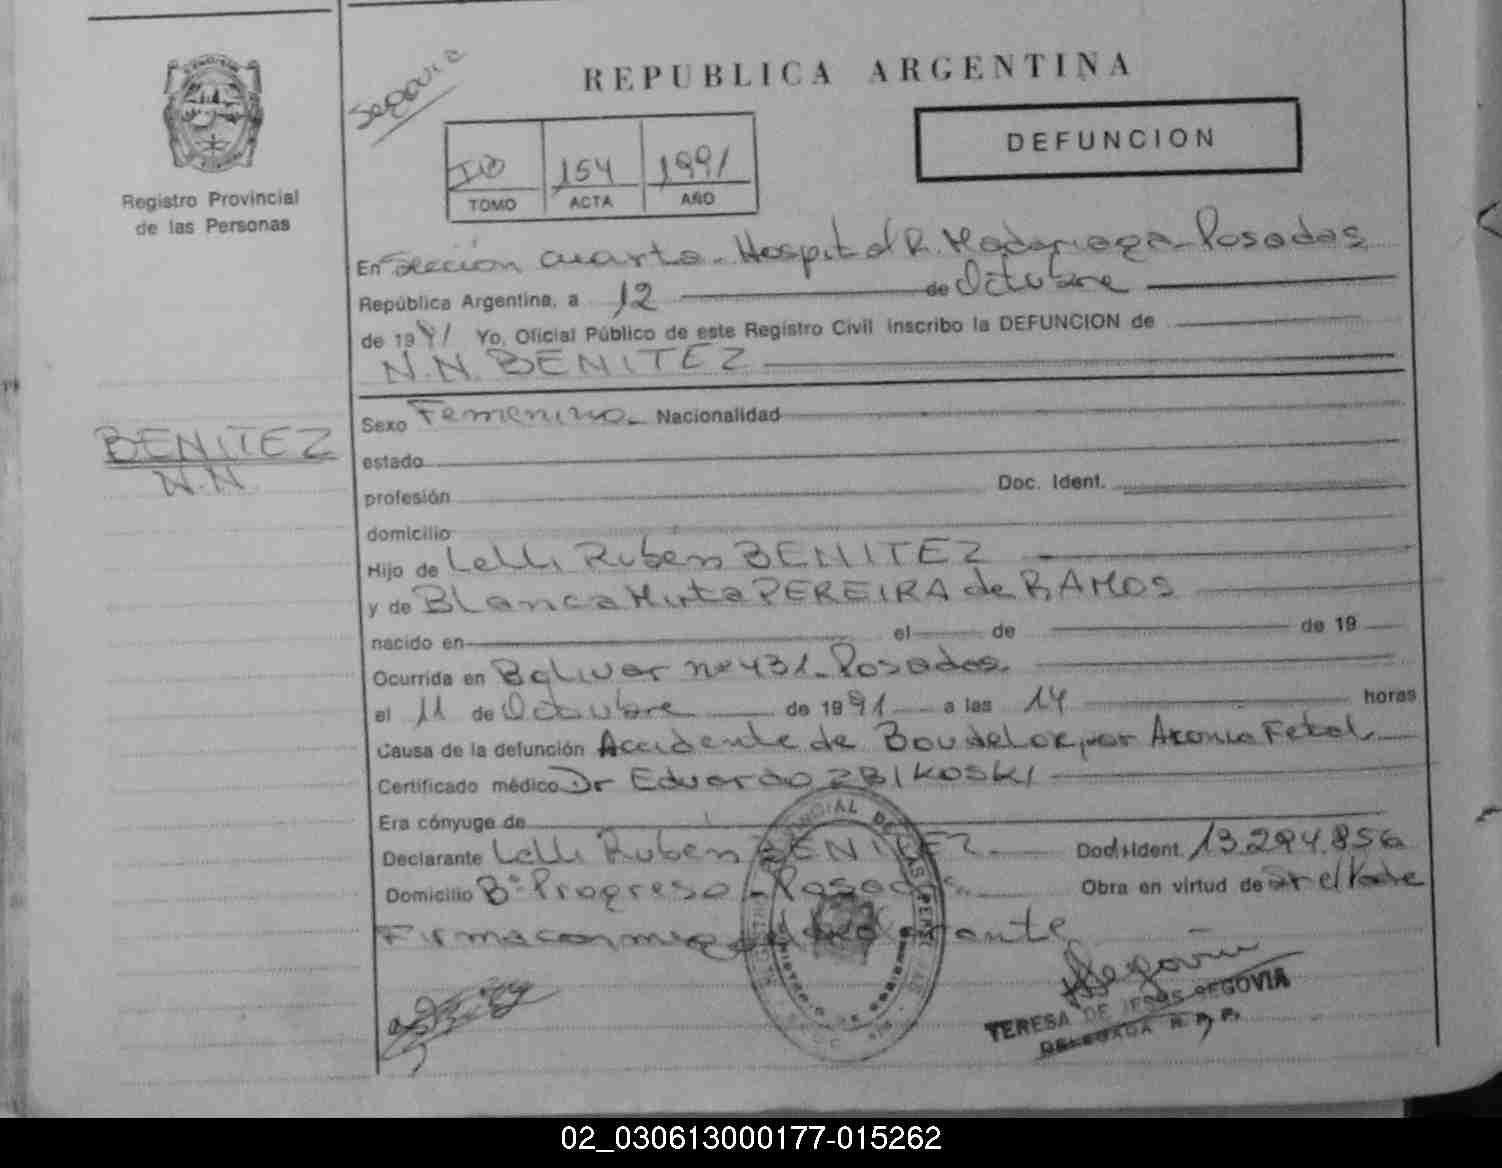 Segovia
REPUBLICA ARGENTINA
DEFUNCION
154 1991
TOMO ACTA AÑO
Registro Provincial
de las Personas
En Sección cuarta - Hospital R. Madariaga - Posadas
República Argentina, a 12 de Octubre
de 1991 Yo, Oficial Público de este Registro Civil inscribo la DEFUNCION de
N.N. BENITEZ
BENITEZ
N.N.
Sexo Femenino - Nacionalidad
estado
profesión Doc. Ident.
domicilio
Hijo de Lelli Rubén BENITEZ
y de Blanca Mirta PEREIRA de RAMOS
nacido en el de de 19
Ocurrida en Bolivar nº 431 - Posadas.
el 11 de Octubre de 1991 a las 14 horas
Causa de la defunción Accidente de por Fetal
Certificado médico Dr Eduardo ZBIKOSKI
Era cónyuge de
Declarante Lelli Rubén BENITEZ Doc. Ident. 13.294.856
Domicilio Bº Progreso - Posadas Obra en virtud de ser el Padre
Firma conmigo el declarante
Segovia
TERESA DE JESUS SEGOVIA
DELEGADA R. P. P.
02_030613000177-015262